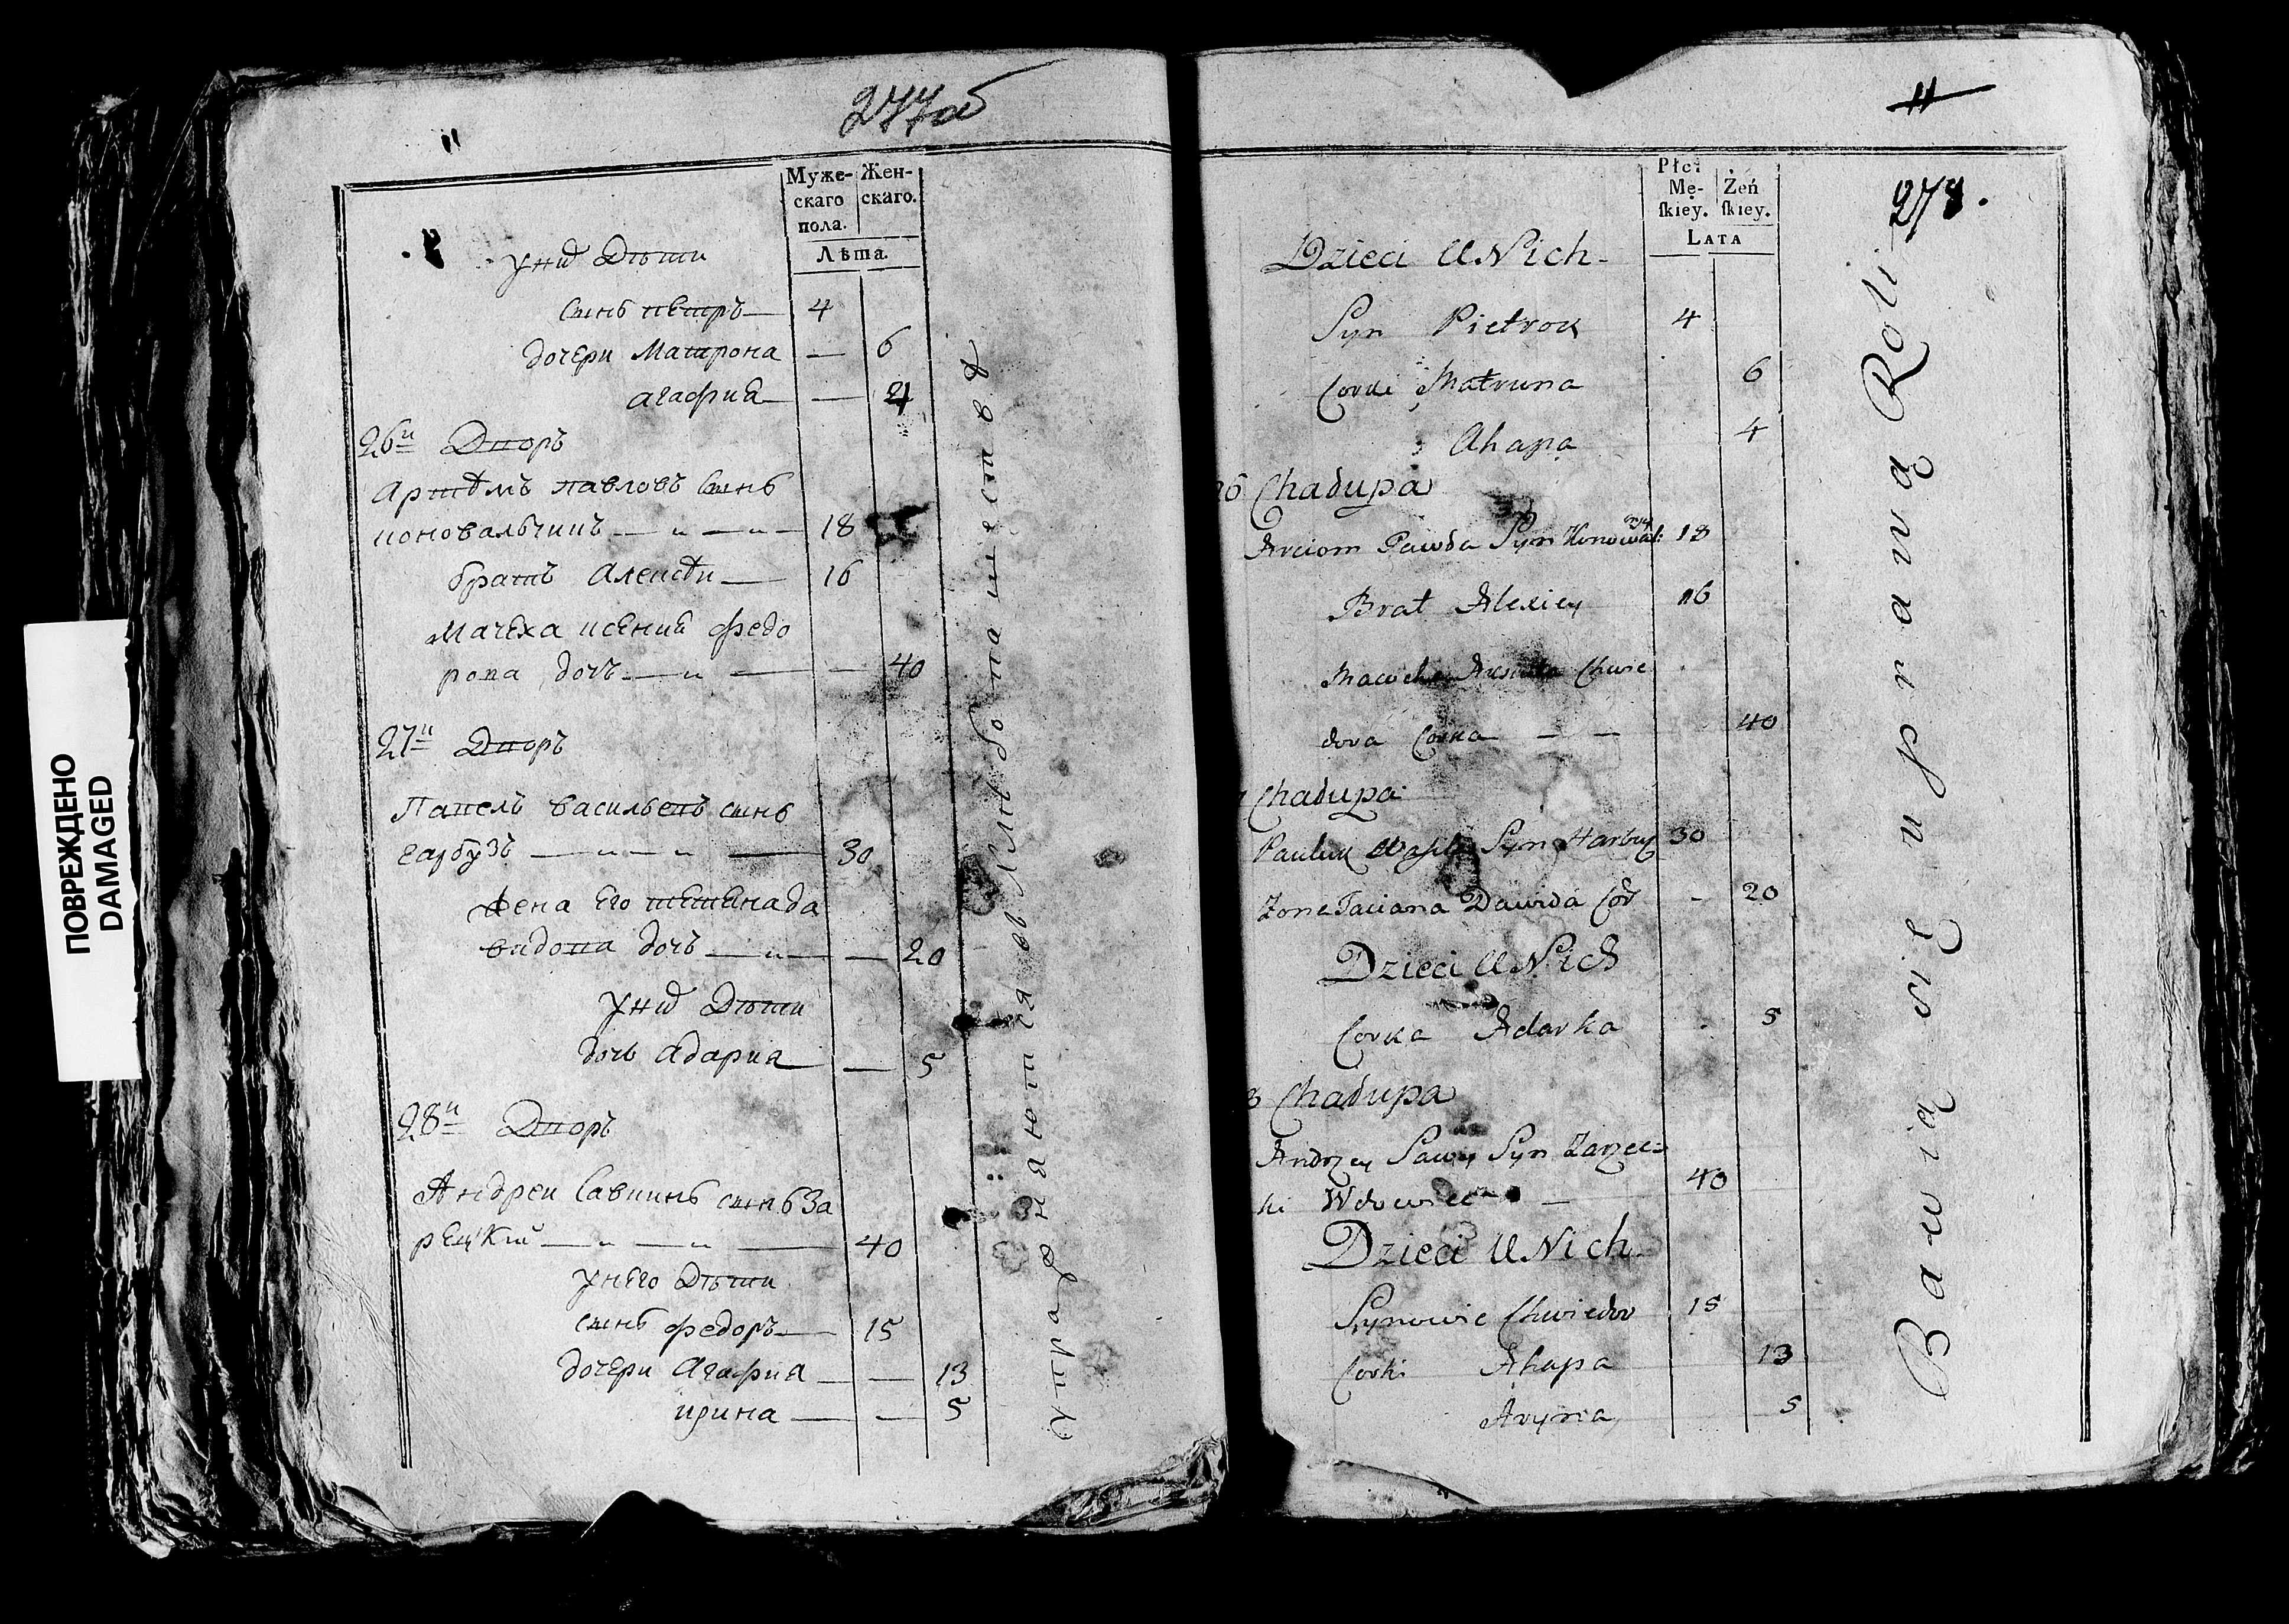 ПОВРЕЖДЕНО
DAMAGED
277об
11
Муже-
скаго
пола.
Жен-
скаго.
Лѣта.
у них Дѣти
сынъ петръ — 4
дочери Матрона — 6
агафия — 4
26й Дворъ
Артемъ павловъ сынъ
коновальчикъ — „ — „ — 18
братъ Алексѣй — 16
Мачеха ксения федо
рова дочь — „ — — 40
27й Дворъ
Павелъ васильевъ сынъ
гарбузъ — „ — „ — 30
жена Его тетияна да
видова дочь — „ — — 20
у них Дѣти
дочь адария — 5
28й Дворъ
Андреи Савинъ сынъ За
рецкий — „ — „ — 40
у него Дѣти
сынъ федоръ — 15
дочери Агафия — — 13
ирина — — 5
упражняются въ хлѣбопашествѣ
11
278.
Płci
Mę-
skiey.
Żeń
skiey.
LATA
Dzieci U Nich
Syn Pietrok 4
Corki Matruna 6
Ahapa 4
26 Chałupa
Arciom Pawła Syn Konowal: czyk 18
Brat Alexiey 16
Macocha Chwie
dora Corka — — 40
Chałupa
Pauluk Wasila Syn Harbuz 30
Zona Taciana Dawida Cor - 20
Dzieci U Nich
Corka Adarka 5
8 Chałupa
Andrzey Sawy Syn Zarzec
ki Wdowiec — 40
Dzieci U Nich
Synowie Chwiedor 15
Corki Ahapa 13
Aryna 5
Bawią się uprawą Roli